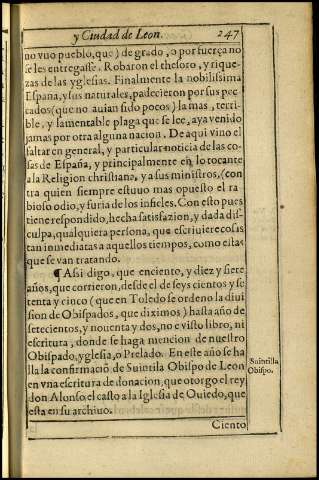 y Ciudad de Leon. 247
no vuo pueblo, que) de grado, o por fuerça no
se les entregasse. Robaron el thesoro, y rique-
zas de las yglesias. Finalmente la nobilissima
España, y sus naturales, padecieron por sus pec
cados (que no auian sido pocos) la mas, terri-
ble, y lamentable plaga que se lee, aya venido
jamas por otra alguna nacion. De aqui vino el
faltar en general, y particular noticia de las co-
sas de España, y principalmente en lo tocante
a la Religion christiana, y a sus ministros, (con
tra quien siempre estuuo mas opuesto el ra
bioso odio, y furia de los infieles. Con esto pues
tiene respondido, hecha satisfazion, y dada dis-
culpa, qualquiera persona, que escriuiere cosas
tan inmediatas a aquellos tiempos, como estas
que se van tratando.
¶ Assi digo, que en ciento, y diez y siete
años, que corrieron, desde el de seys cientos y se
tenta y cinco (que en Toledo se ordeno la diui
sion de Obispados, que diximos) hasta año de
setecientos, y nouenta y dos, no e visto libro, ni
escritura, donde se haga mencion de nuestro
Obispado, yglesia, o Prelado. En este año se ha
lla la confirmaciō de Suintila Obispo de Leon
en vna escritura de donacion, que otorgo el rey
don Alonso el casto a la Iglesia de Ouiedo, que
esta en su archiuo.
Suintila
Obispo.
Ciento